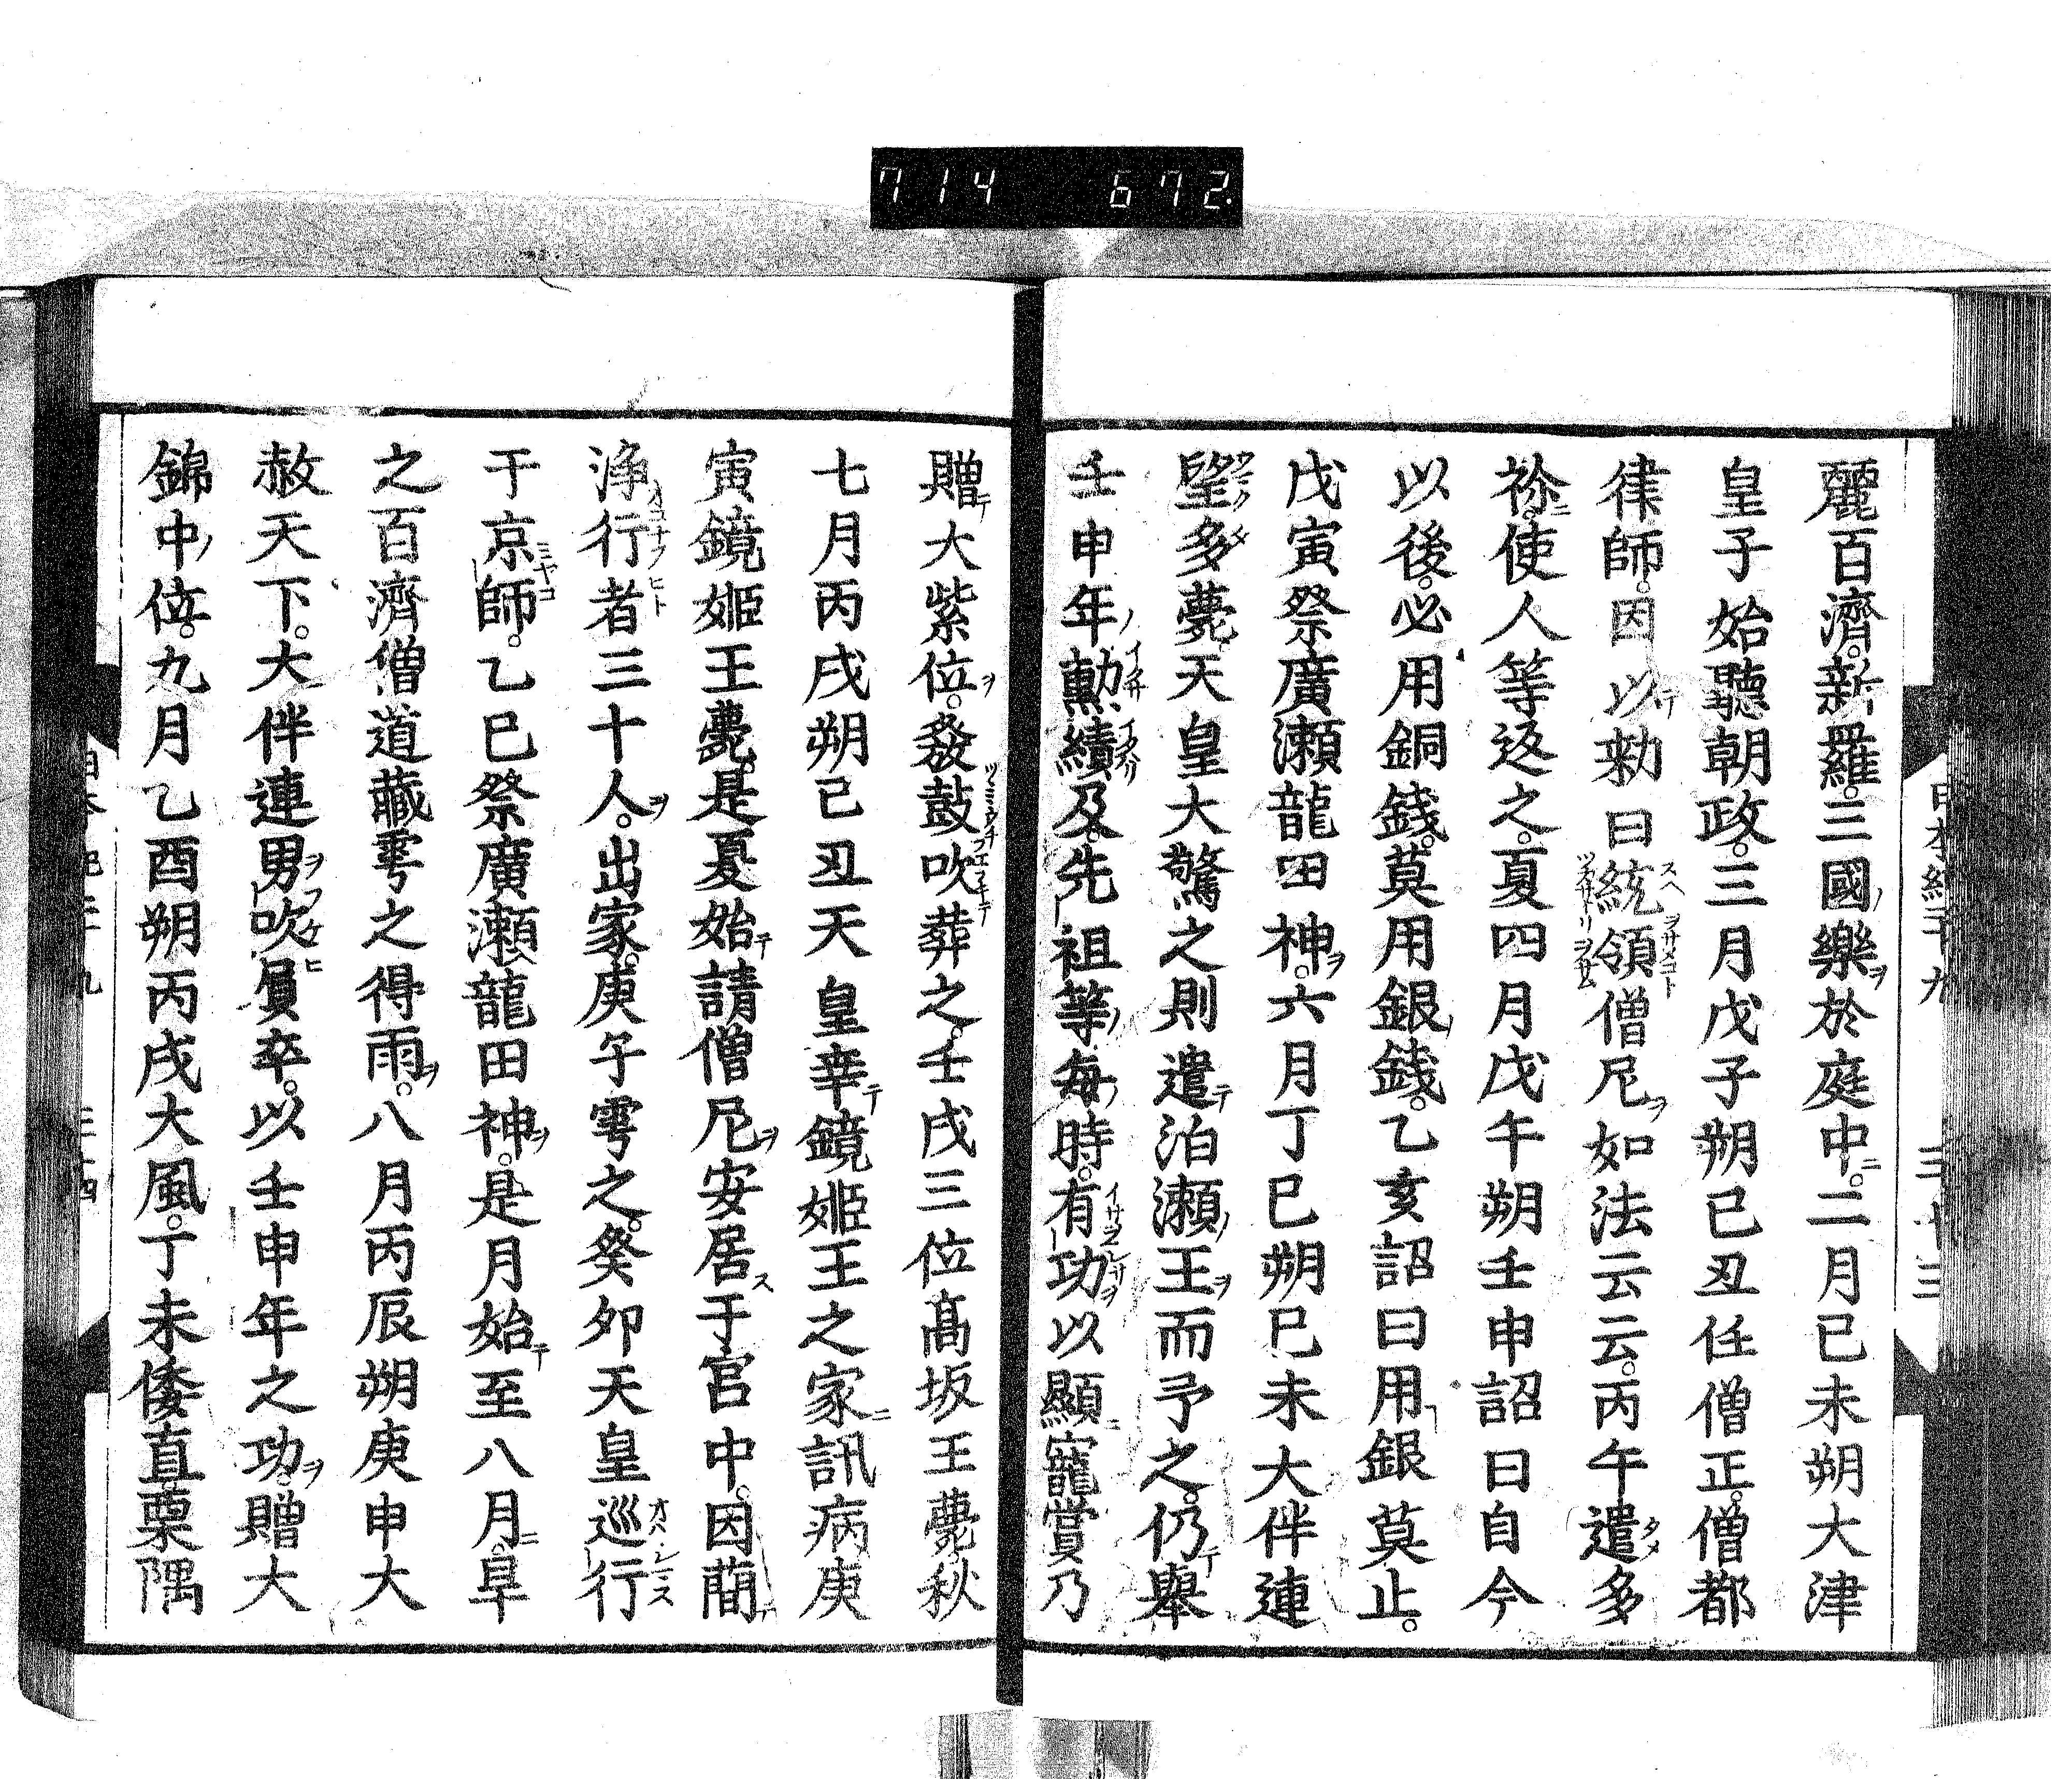 714 672.
麗百濟。新羅。三國ノ樂ヲ於庭中ニ。二月己未朔大津
皇子始聽朝政。三月戊子朔己丑任僧正。僧都
律師。因以テ勅曰統領僧尼ヲ如法云云。丙午遣多
祢ニ。使人等返之。夏四月戊午朔壬申詔曰自今
以後。必用銅錢。莫用銀錢。乙亥詔曰用銀莫止。
戊寅祭廣瀬龍田神ヲ。六月丁巳朔己未大伴連
望多薨天皇大驚之則遣テ泊瀬ノ王ヲ而予之。仍テ舉
壬申年ノ勳績及。先祖等毎時。有功ヲ以顯ニ寵賞乃
贈テ大紫位ヲ。發鼓吹葬之。壬戌三位髙坂王薨秋
七月丙戌朔己丑天皇幸テ鏡姬王之家ニ訊病庚
寅鏡姬王薨。是夏始テ請僧尼ヲ安居ス于宮中。因蕳
浄行者三十人ヲ。出家。庚午雩之。癸卯天皇巡行
于京師。乙巳祭廣瀬龍田神ヲ。是月始テ至八月ニ旱
之百濟僧道藏雩之得雨ヲ。八月丙辰朔庚申大
赦天下。大伴連男吹屓卒。以壬申年之功ヲ。贈大
錦中ノ位。九月乙酉朔丙戌大風。丁未倭直栗隅